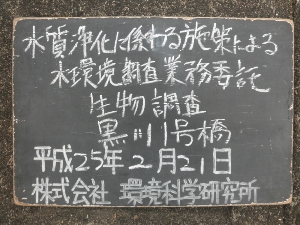 水質浄化に係わる施策による
水環境調査業務委託
生物調査
黒川1号橋
平成25年2月21日
株式会社 環境科学研究所